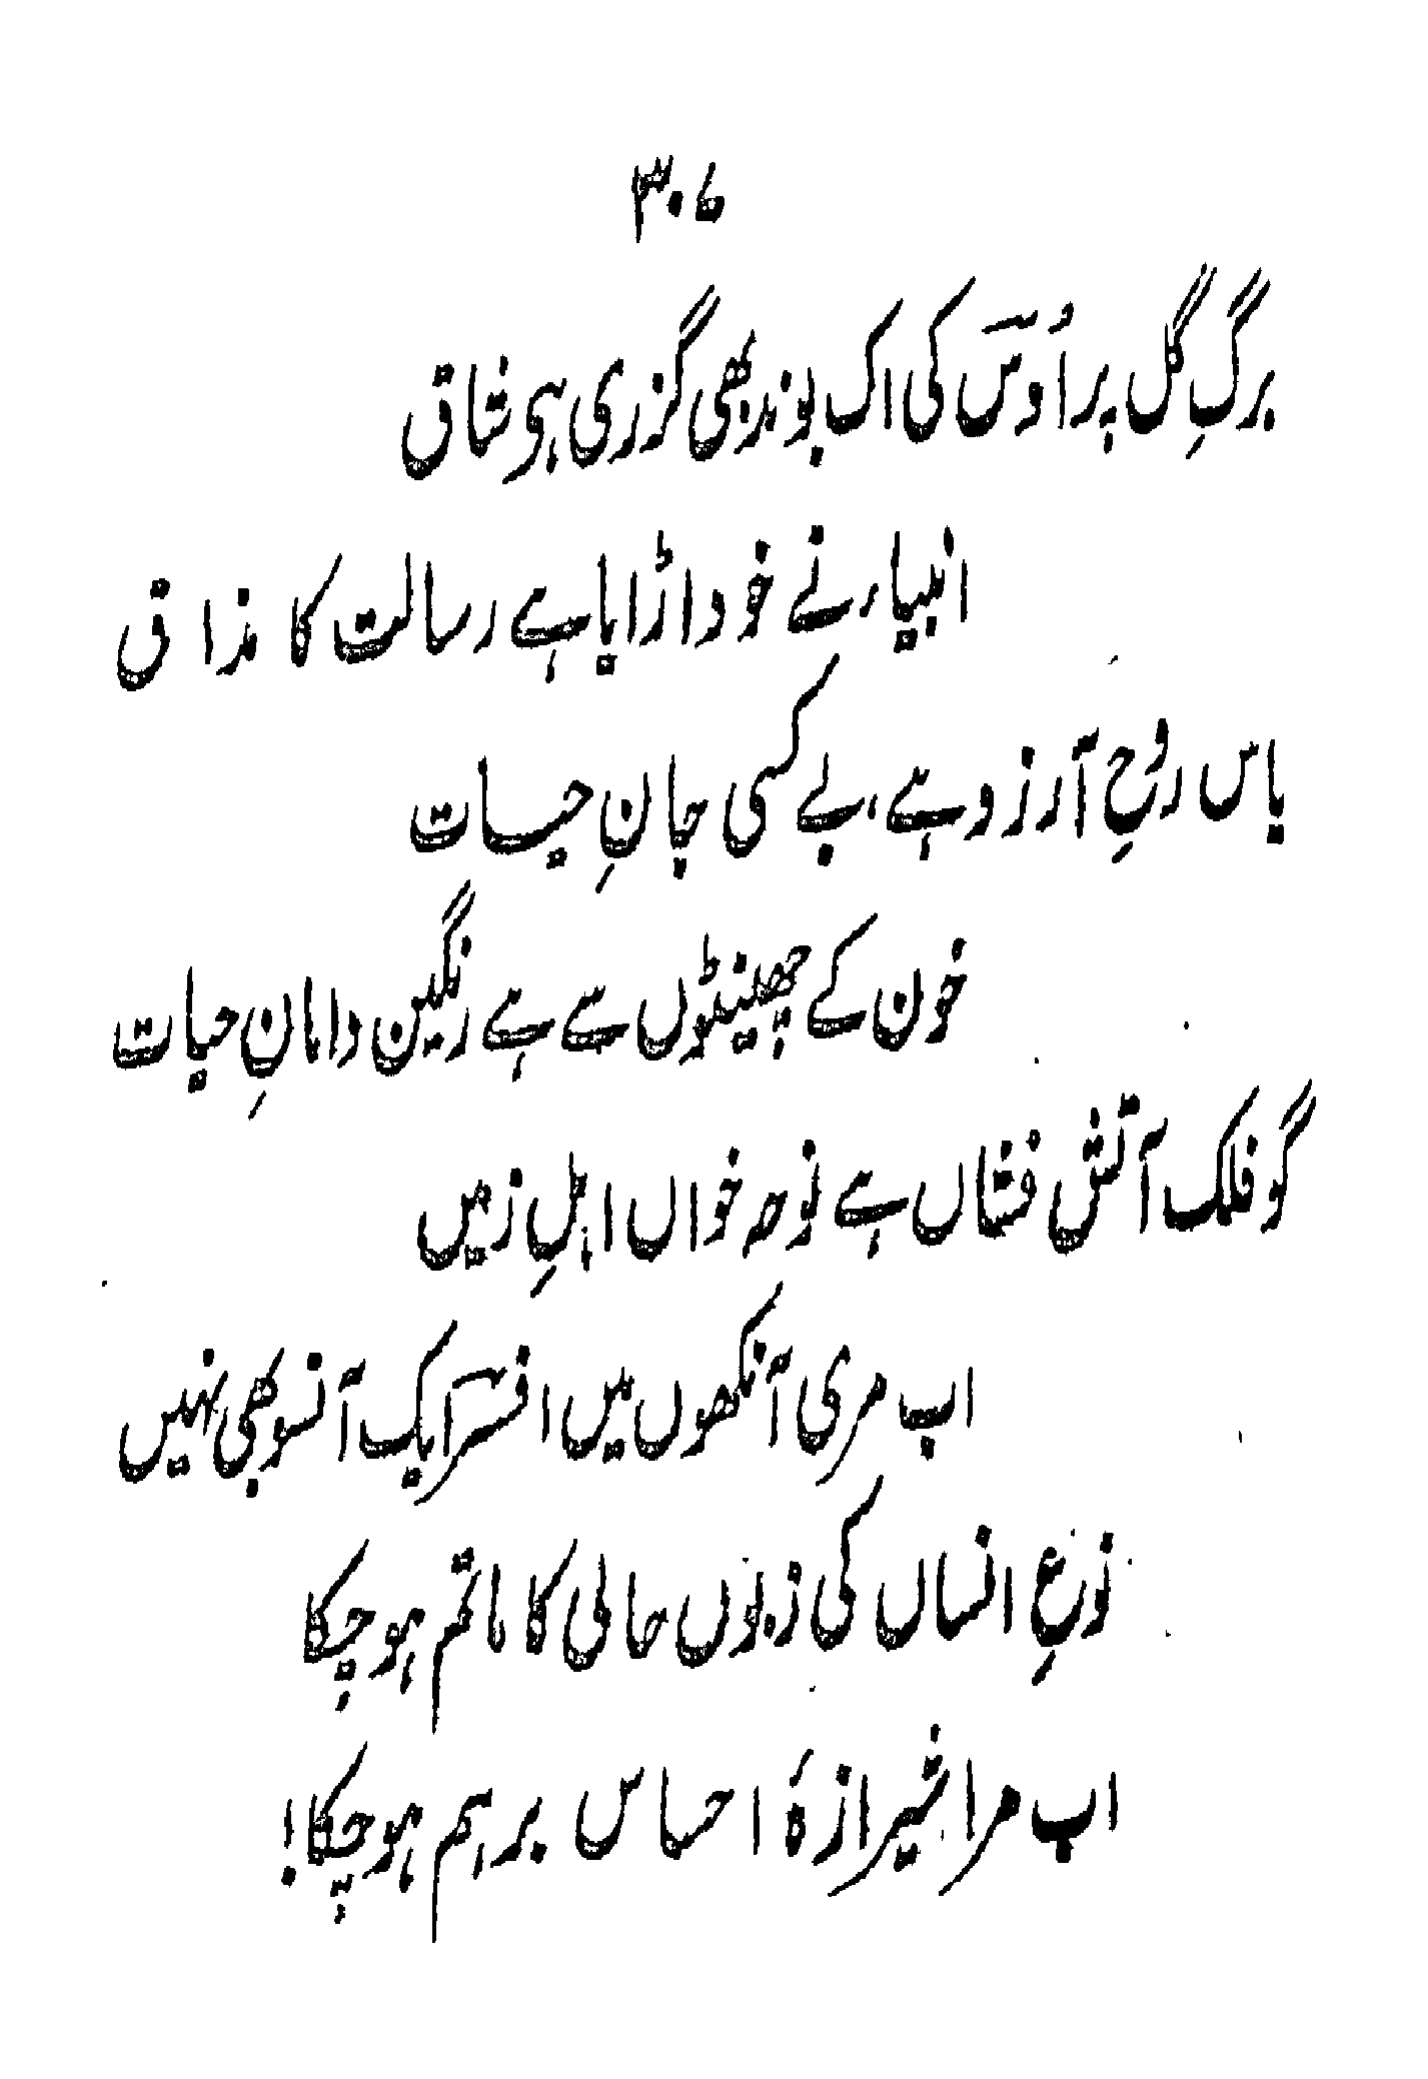 ۳۰۶
برگِ گل پر اُوس کی اک بوند بھی گزری ہی شاق
انبیاء نے خود اڑایا ہے رسالت کا مذاق
یاس روحِ آرزو ہے، بے کسی جانِ حیات
خون کے چھینٹوں سے ہے رنگین دامانِ حیات
گو فلک آتش فشاں ہے نوحہ خواں اہلِ زمیں
اب مری آنکھوں میں افسر ایک آنسو بھی نہیں
نوعِ انساں کی زبوں حالی کا ماتم ہو چکا
اب مرا شیرازۂ احساس برہم ہو چکا!